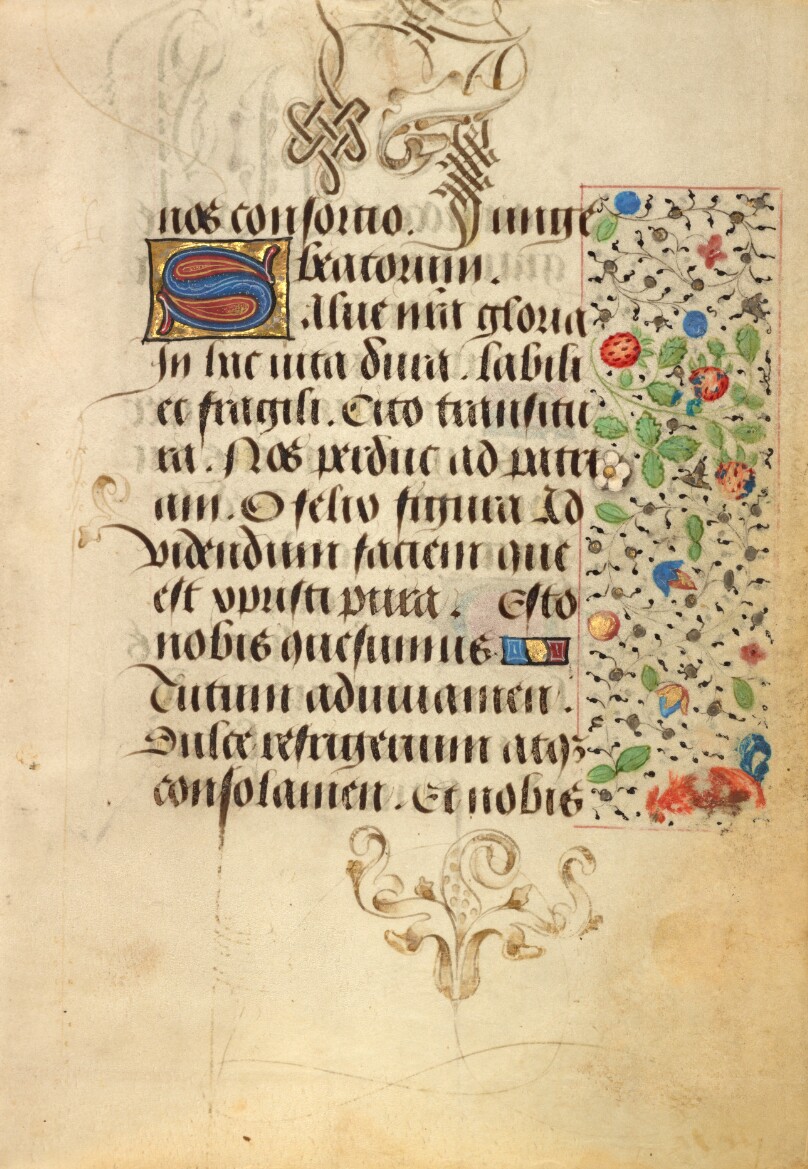 nos consortio. Junge
beatorum.
Salue nr̄a gloria
In hac uita dura. labili
et fragili. Cito transitu
ra. Nos perduc ad patri
am. O felix figura Ad
videndum faciem que
est xpristi pura. Esto
nobis quesumus
Tutum adiuuamen.
Dulce refrigerium atqꝫ
consolamen. Et nobis